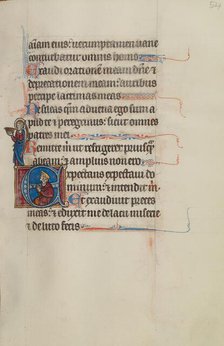 animam eius: uerumptamen uane
conturbatur omnis homo
Exaudi orationem meam dñe &
deprecationem meam: auribus
percipe lacrimas meas
Ne sileas quia aduena ego sum a
pud te & peregrinus: sicut omnes
patres mei
Remitte michi ut refrigerer priusq
abeam: & amplius non ero
Expectans expectaui do
minum: & intendit m
Et exaudiuit preces
meas: & eduxit me de lacu miserie
& de luto fecis